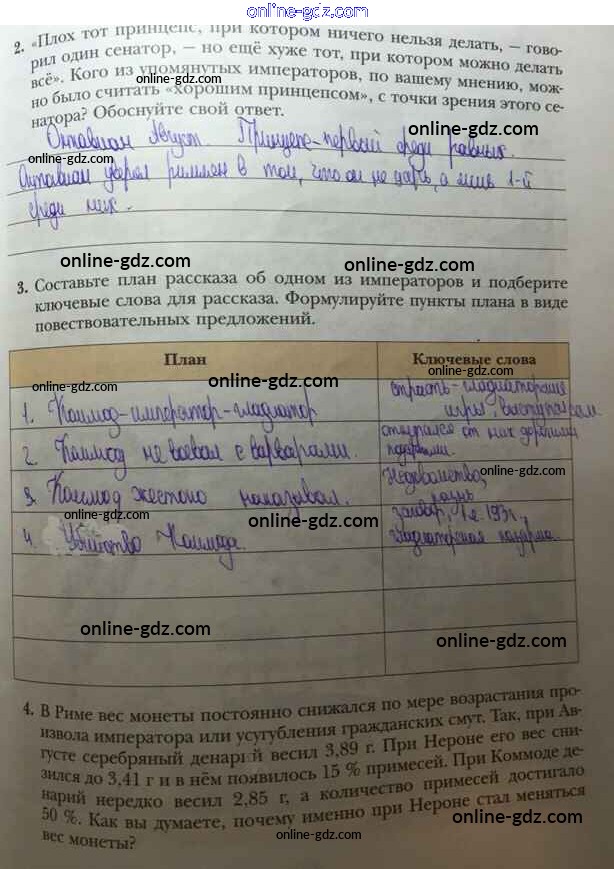 online-gdz.com
2. «Плох тот принцепс, при котором ничего нельзя делать, – гово-
рил один сенатор, – но ещё хуже тот, при котором можно делать
всё». Кого из упомянутых императоров, по вашему мнению, мож-
но было считать «хорошим принцепсом», с точки зрения этого се-
натора? Обоснуйте свой ответ.
online-gdz.com
online-gdz.com
Октавиан Август. Принцепс-первый среди равных.
online-gdz.com
Октавиан уверял римлян в том, что он не царь, а лишь 1-й
среди них.
online-gdz.com
online-gdz.com
3. Составьте план рассказа об одном из императоров и подберите
ключевые слова для рассказа. Формулируйте пункты плана в виде
повествовательных предложений.
План Ключевые слова
online-gdz.com online-gdz.com online-gdz.com
1. Коммод-император-гладиатор страсть-гладиаторские
игры, выступал
2. Коммод не воевал с варварами. откупался от них дорогими
подарками.
online-gdz.com
3. Коммод жестоко наказывал. Недовольства,
казнь
online-gdz.com online-gdz.com
4. Убийство Коммода. заговор, 193г.,
гладиаторская казарма.
online-gdz.com
online-gdz.com
online-gdz.com
4. В Риме вес монеты постоянно снижался по мере возрастания про-
извола императора или усугубления гражданских смут. Так, при Ав-
густе серебряный денарий весил 3,89 г. При Нероне его вес сни-
зился до 3,41 г и в нём появилось 15 % примесей. При Коммоде де-
нарий нередко весил 2,85 г, а количество примесей достигало
50 %. Как вы думаете, почему именно при Нероне стал меняться
вес монеты?
online-gdz.com
online-gdz.com